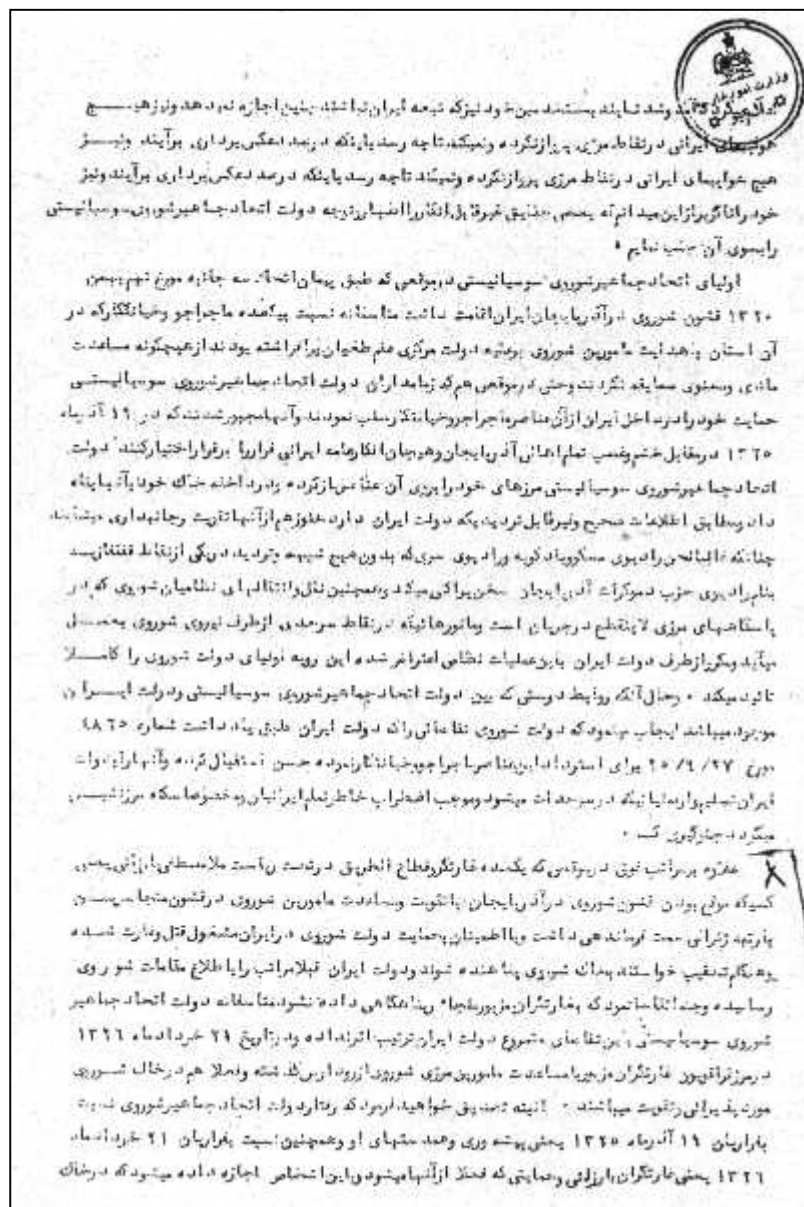 وزارت امور خارجه
هواپیمای ایرانی در نقاط مرزی پرواز نکرده و نمیکند تا چه رسد باینکه درصدد عکس برداری برآیند ونیز
هیچ هواپیمای ایرانی در نقاط مرزی پرواز نکرده و نمیکند تا چه رسد باینکه درصدد عکس برداری برآیند ونیز
خود را ناگزیر از این میدانم که بعضی حقایق غیرقابل انکار را اظهار و توجه دولت اتحاد جماهیر شوروی سوسیالیستی
را بسوی آن جلب نمایم •
اولیای اتحاد جماهیر شوروی سوسیالیستی در موقعی که طبق پیمان اتحاد سه جانبه مورخ نهم بهمن
۱۳۲۰ قشون شوروی در آذربایجان ایران اقامت داشت متاسفانه نسبت بیکعده ماجراجو و خیانتکار که در
آن استان با هدایت مامورین شوروی برعلیه دولت مرکزی علم طغیان برافراشته بودند از هیچگونه مساعدت
مادی و معنوی مضایقه نکردند وحتی در موقعی هم که زمامداران دولت اتحاد جماهیر شوروی سوسیالیستی
حمایت خود را در داخل ایران از آن عناصر ماجراجو و خیانتکار سلب نمودند و آنها مجبور شدند که در ۱۹ آذرماه
۱۳۲۵ در مقابل خشم و غضب تمام اهالی آذربایجان و هیجان افکار عامه ایرانی فرار را برقرار اختیار کنند دولت
اتحاد جماهیر شوروی سوسیالیستی مرزهای خود را بروی آن عناصر باز کرده و در داخله خاک خود بآنها پناه
داد و مطابق اطلاعات صحیح و غیرقابل تردیدیکه دولت ایران دارد هنوز هم از آنها تقویت و جانبداری مینمایند
چنانکه غالبا لحن رادیوی مسکو و بادکوبه و رادیوی سری که بدون هیچ شبهه و تردید در یکی از نقاط قفقازیه
بنام رادیوی حزب دموکرات آذربایجان سخن پراکنی میکند و همچنین نقل و انتقالهای نظامیان شوروی که در
پاسگاههای مرزی لاینقطع در جریان است و مانورهائیکه در نقاط سرحدی از طرف نیروی شوروی بعمل
میآید و مکرر از طرف دولت ایران باین عملیات نظامی اعتراض شده این رویه اولیای دولت شوروی را کاملا
تائید میکند • و حال آنکه روابط دوستی که بین دولت اتحاد جماهیر شوروی سوسیالیستی و دولت ایران
موجود میباشد ایجاب مینمود که دولت شوروی تقاضائی را که دولت ایران طبق یادداشت شماره ۴۸۶۵
مورخ برای استرداد این عناصر ماجراجو و خیانتکار نموده حسن استقبال کرده و آنها را بدولت
ایران تسلیم و از عملیاتیکه در سرحدات میشود و موجب اضطراب خاطر تمام ایرانیان و مخصوصا سکنه مرزنشین
میگردد جلوگیری کند •
علاوه بر مراتب فوق در موقعی که یکعده غارتگر و قطاع الطریق در تحت ریاست ملامصطفی بارزانی یعنی
کسیکه موقع بودن قشون شوروی در آذربایجان با تقویت و مساعدت مامورین شوروی در قشون متجاسرین
با رتبه ژنرالی سمت فرماندهی داشت و با اطمینان بحمایت دولت شوروی در ایران مشغول قتل و غارت شده
و هنگام تعقیب خواستند بخاک شوروی پناهنده شوند و دولت ایران قبلا مراتب را باطلاع مقامات شوروی
رسانیده و جدا تقاضا نمود که بغارتگران مزبور ملجاء و پناهگاهی داده نشود متاسفانه دولت اتحاد جماهیر
شوروی سوسیالیستی باین تقاضای مشروع دولت ایران ترتیب اثر نداده و در تاریخ ۲۹ خردادماه ۱۳۲۶
در مرز قراقویون غارتگران مزبور با مساعدت مامورین مرزی شوروی از رود ارس گذشته و فعلا هم در خاک شوروی
مورد پذیرائی و تقویت میباشند • البته تصدیق خواهید فرمود که رفتار دولت اتحاد جماهیر شوروی نسبت
بفراریان ۱۹ آذرماه ۱۳۲۵ یعنی پیشه وری و همدستهای او و همچنین نسبت بفراریان ۲۱ خردادماه
۱۳۲۶ یعنی غارتگران بارزانی و حمایتی که فعلا از آنها میشود و باین اشخاص اجازه داده میشود که در خاک